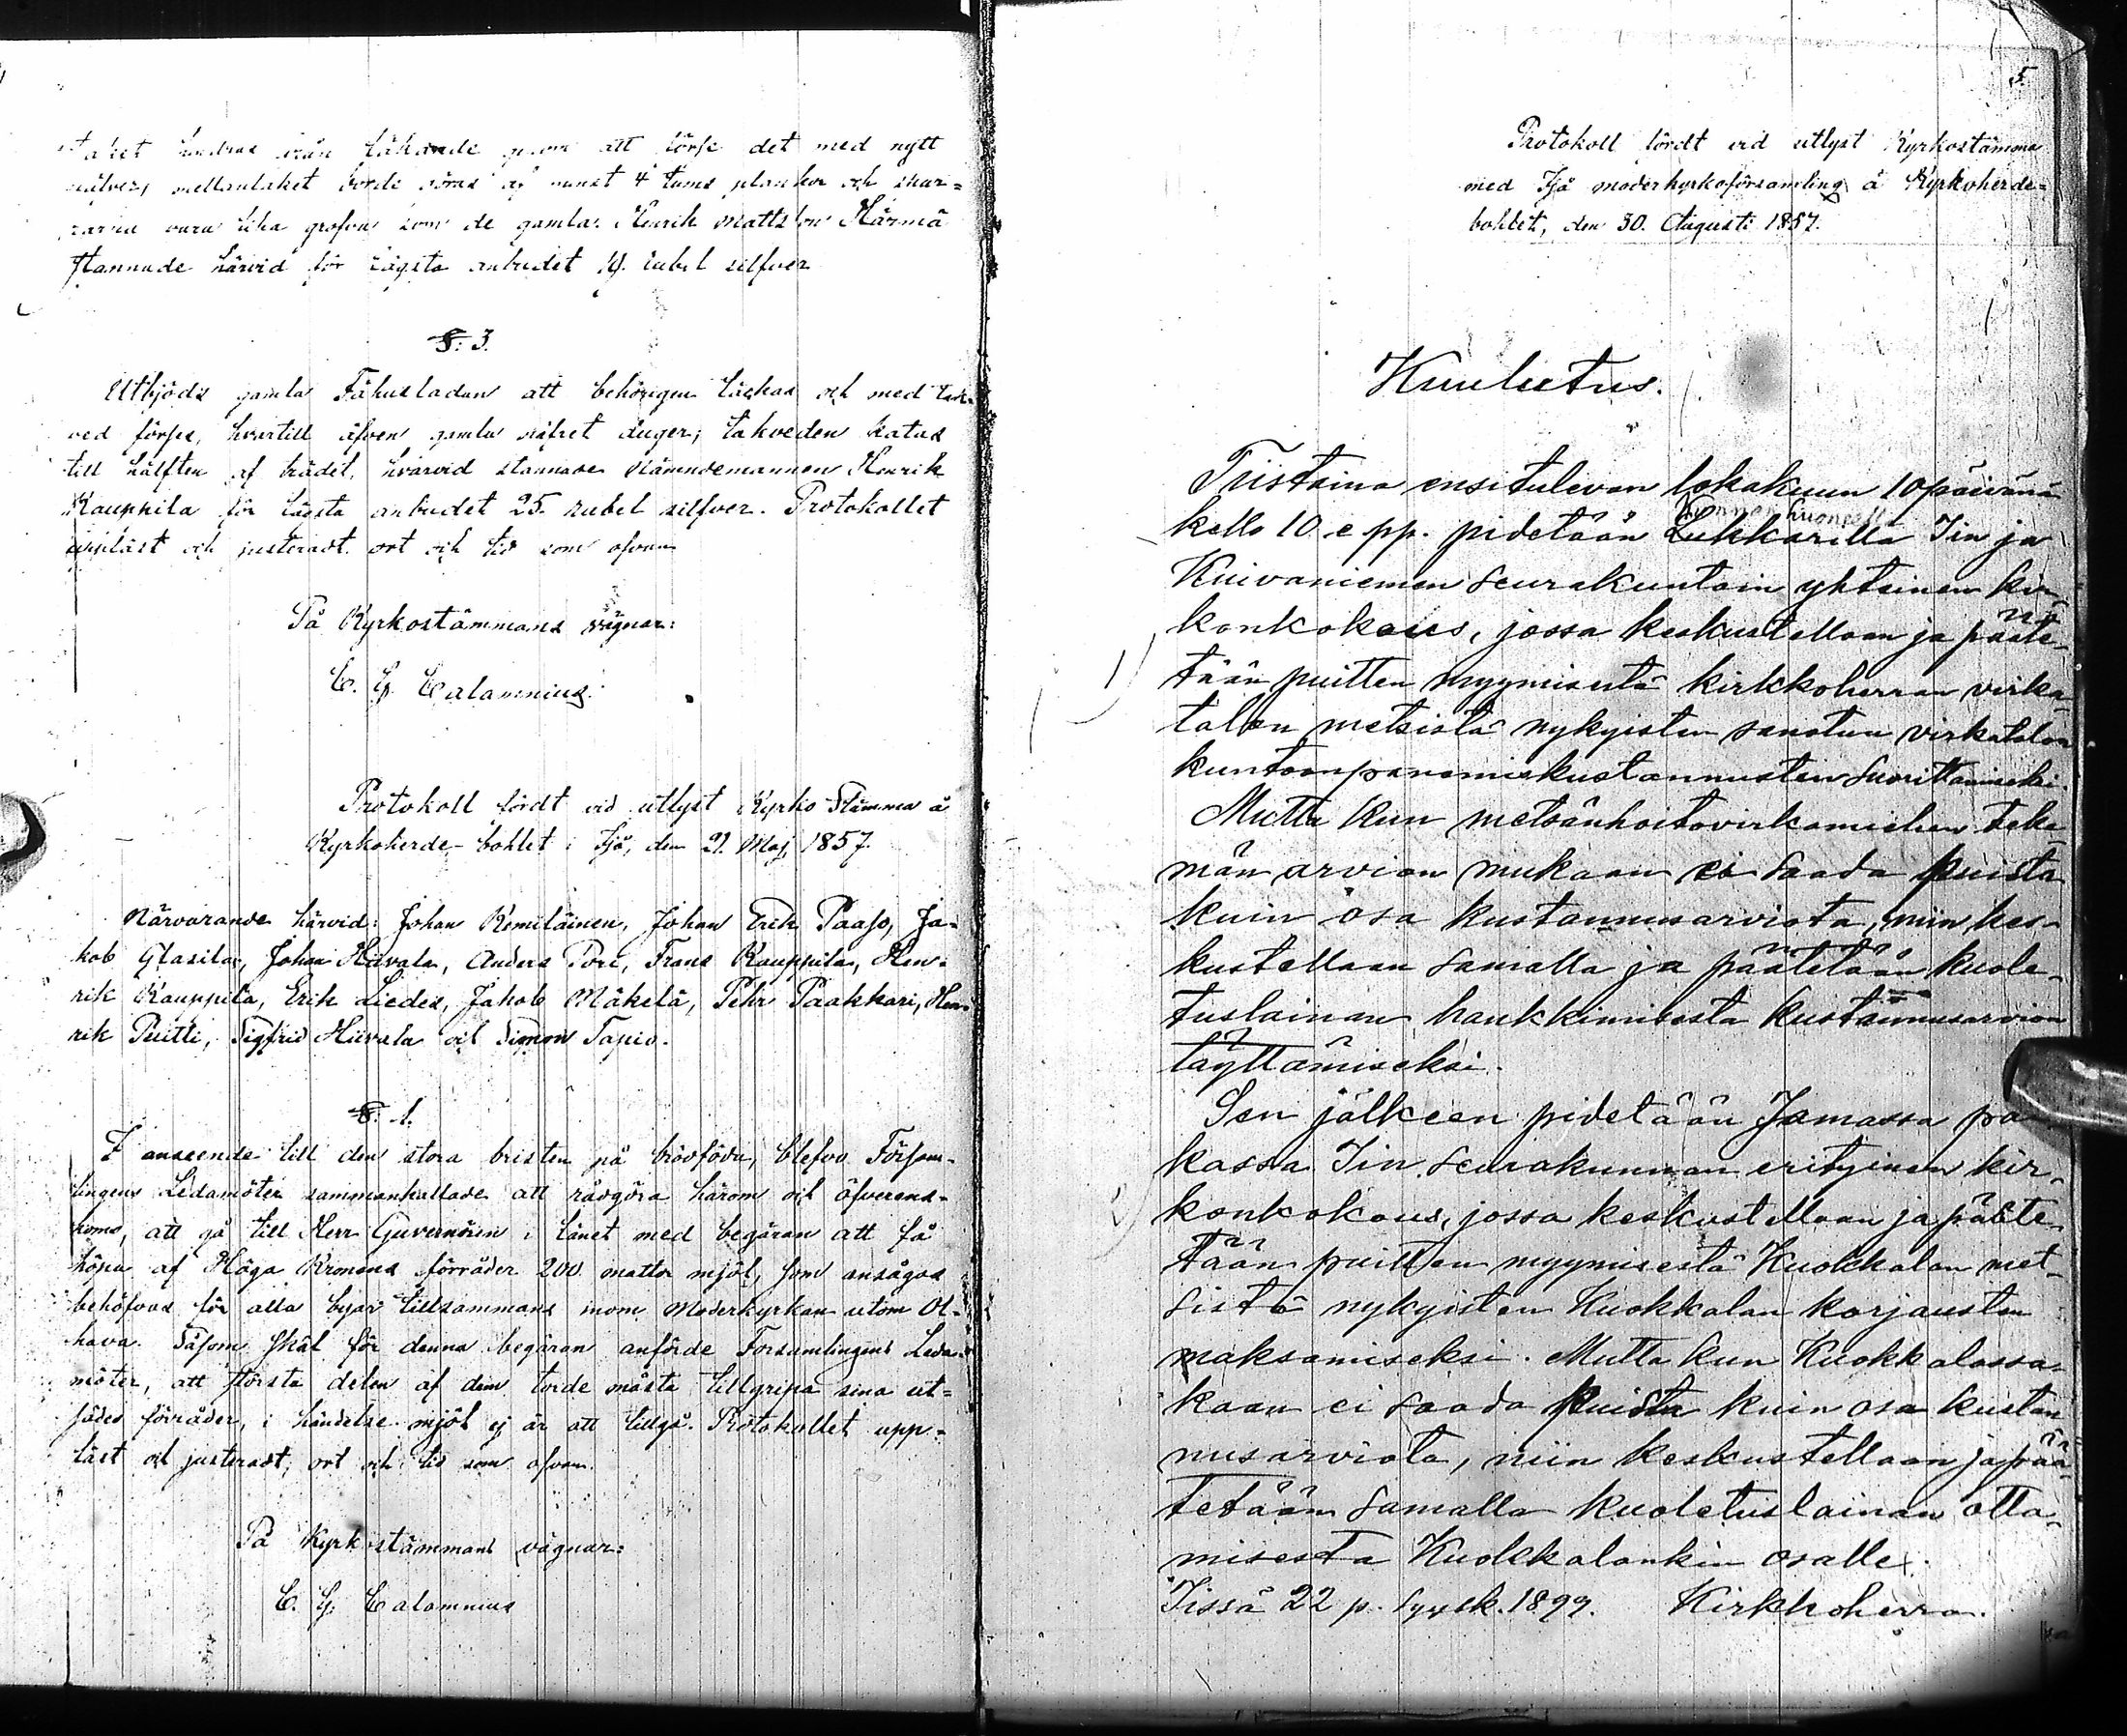 taket att förse det med nytt
mellantaket borde göras af minst 4 tums plankor och spar-
rarna vara lika grofva som de gamla. Henrik Mattsson Härmä
stannade härvid för lägsta anbudet 19. rubel silfver
§: 3.
Utbjöds gamla Fähusladan att behörigen täckas och med tak-
ved förses, hvartill äfven gamla näfret duger; takveden katas
till hälften af trädet, hvarvid stannade Nämndemannen Henrik
Kauppila för lägsta anbudet 25. rubel silfver. Protokollet
uppläst och justeradt, ort och tid som ofvan
På Kyrkostämmans vägnar:
C. G. Calamnius.
Protokoll fördt vid utlyst Kyrko Stämma å
Kyrkoherde-bohlet i Ijå, den 21. Maj 1857.
Närvarande härvid: Johan Kemiläinen, Johan Erik Paaso, Ja-
kob Glasila, Johan Hiivala, Anders Pori, Frans Kauppila, Hen-
rik Kauppila, Erik Liedes, Jakob Mäkelä, Pehr Paakkari, Hen-
rik Puitti, Sigfrid Hiivala och Simon Tapio.
§: 1.
I anseende till den stora bristen på brödföda, blefvo Försam-
lingens Ledamöter sammankallade att rådgöra härom och öfverens-
koms, att gå till Herr Guvernören i länet med begäran att få
köpa af Höga Kronans förråder 200 mattor mjöl, som ansågos
behöfvas för alla byar tillsammans inom Moderkyrkan utom Ol-
hava. Såsom skäl för denna begäran anförde Församlingens Leda-
möter, att största delen af dem torde måsta tillgripa sina ut-
sädes förråder, i händelse mjöl ej är att tillgå. Protokollet upp-
läst och justeradt, ort och tid som ofvan.
På Kyrkostämmans vägnar:
C. G. Calamnius
5.
Protokoll fördt vid utlyst Kyrkostämma
med Ijå moderkyrkoförsamling å Kyrkoherde-
bohlet, den 30. Augusti 1857.
Kuulutus.
Tiistaina ensitulevan lokakuun 10 päivänä
kello 10 e pp. pidetään Lukkarilla Iin ja
Kuivaniemen seurakuntain yhteinen kir-
konkokous, jossa keskustellaan ja pääte-
1)
tään puitten myymisestä kirkkoherran virka-
talon metsistä nykyisten sanotun virkatalon
kuntoonpanemiskustannusten suorittamiseksi.
Mutta kun metsänhoitovirkamiehen teke-
män arvion mukaan ei saada puista
kuin osa kustannusarviota, niin kes-
kustellaan samalla ja päätetään kuole-
tuslainan hankkimisesta kustannusarvion
täyttämiseksi.
Sen jälkeen pidetään samassa pai-
kassa Iin seurakunnan erityinen kir-
2)
konkokous, jossa keskustellaan ja pääte-
tään puitten myymisestä Kuokkalan met-
sistä nykyisten Kuokkalan korjausten
maksamiseksi. Mutta kun Kuokkalassa-
kaan ei saada puista kuin osa kustan
nusarviota, niin keskustellaan ja pää-
tetään samalla kuoletuslainan otta-
misesta Kuokkalankin osalle.
Iissä 22 p. syysk. 1899. Kirkkoherra.